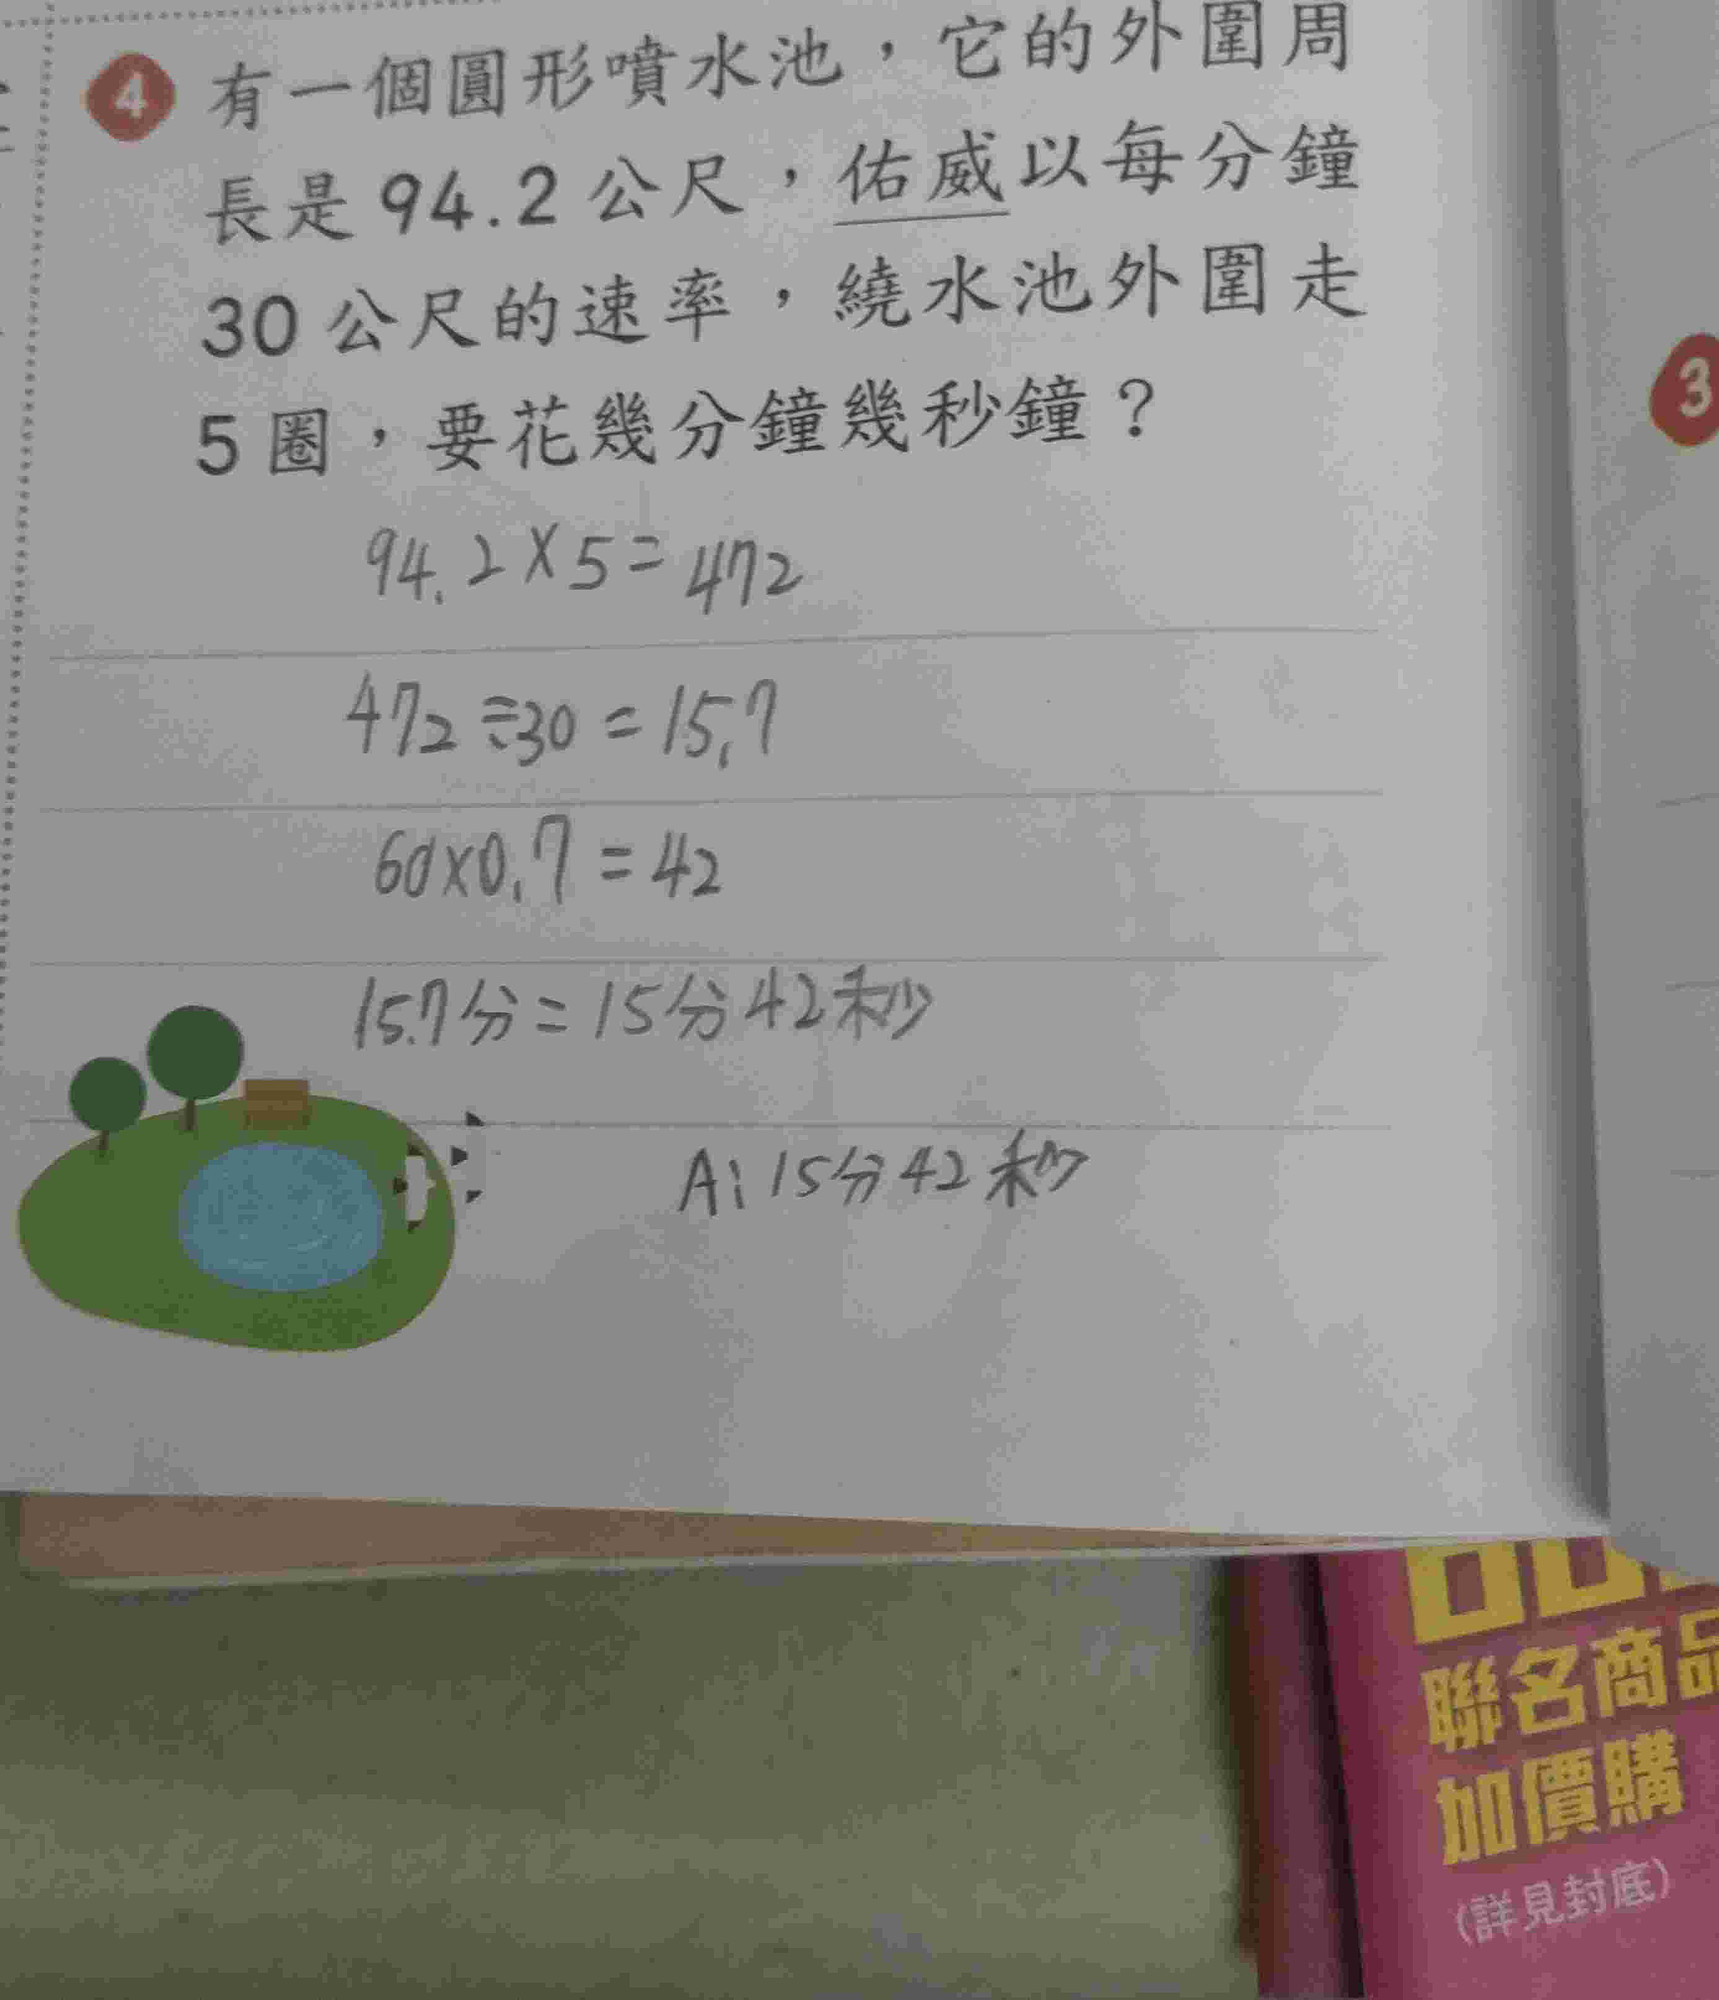 4 有一個圓形噴水池，它的外圍周
長是94.2公尺，佑威以每分鐘
30公尺的速率，繞水池外圍走
5圈，要花幾分鐘幾秒鐘？
94.2×5=472
472÷30=15.7
60×0.7=42
15.7分=15分42秒
A:15分42秒
3
聯名商品
加價購
(詳見封底)